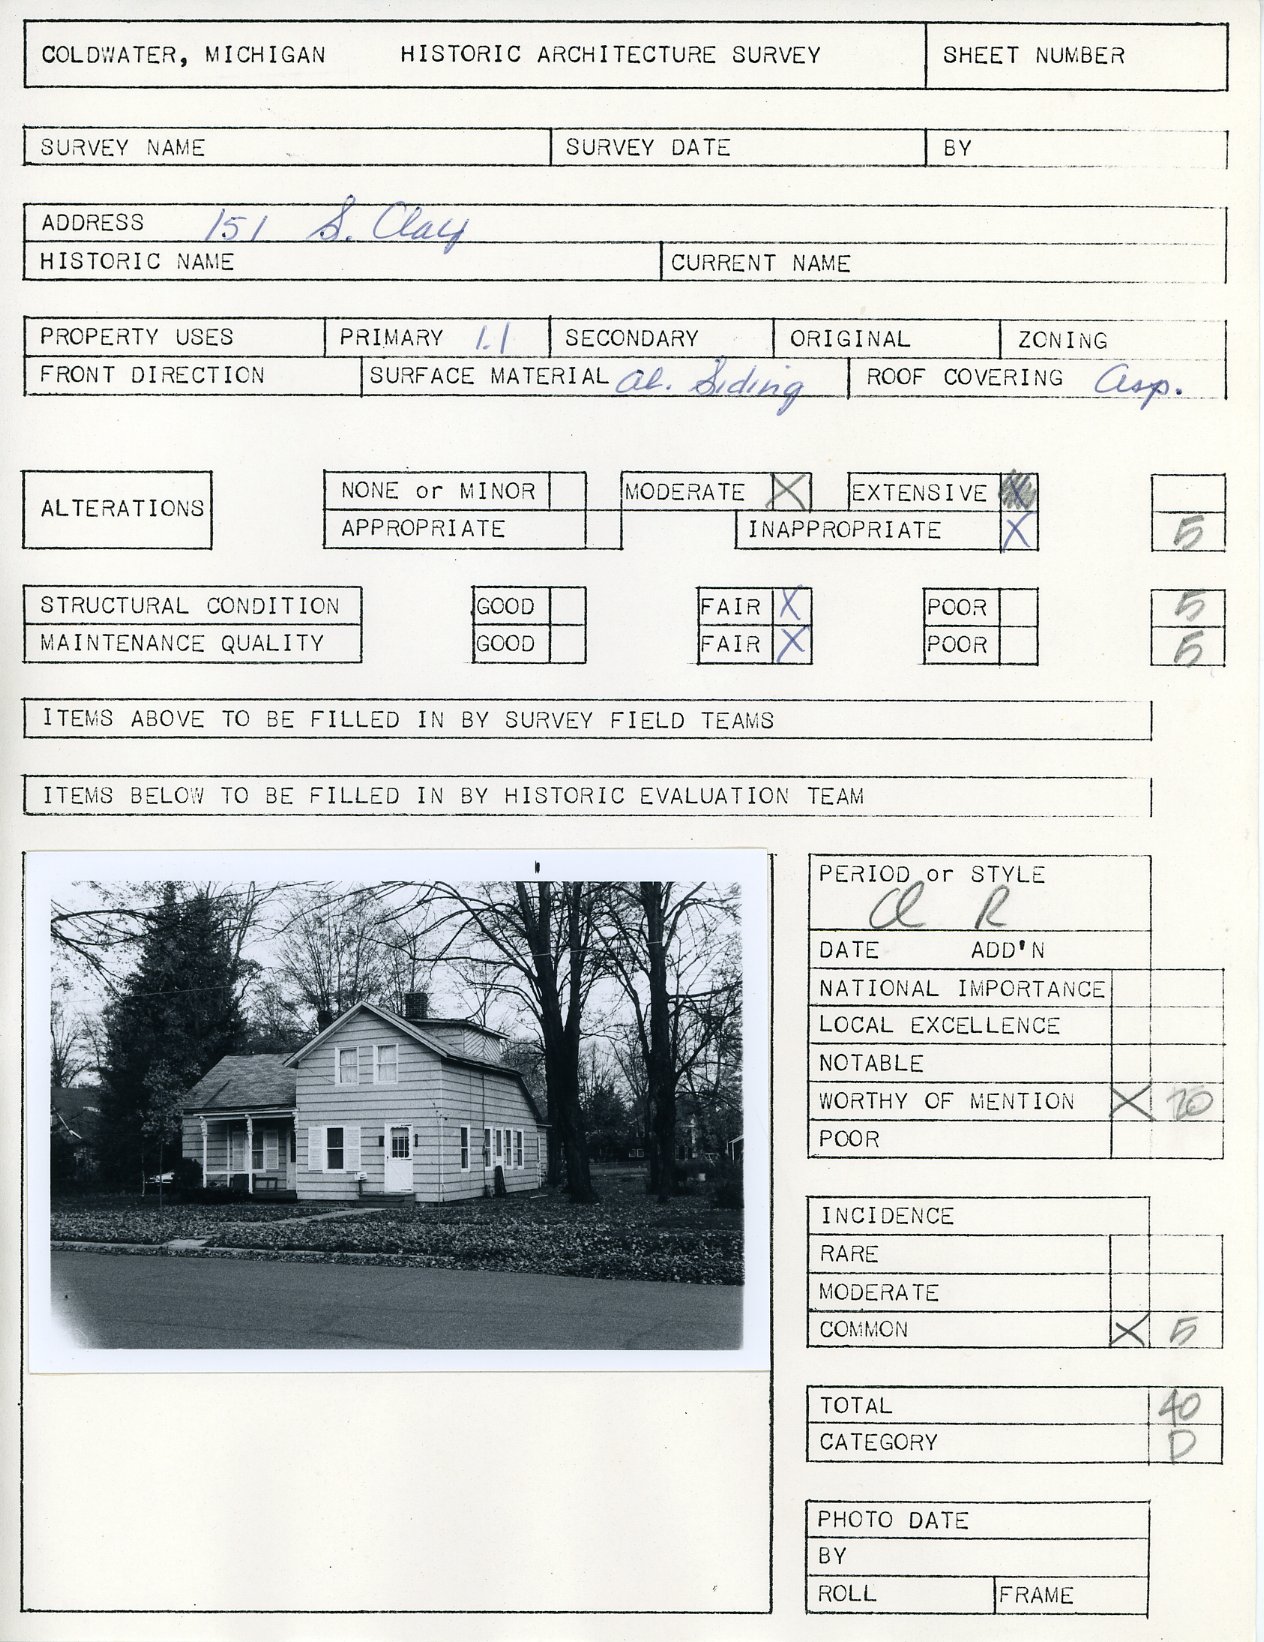 COLDWATER, MICHIGAN HISTORIC ARCHITECTURE SURVEY SHEET NUMBER
SURVEY NAME SURVEY DATE BY
ADDRESS 151 S. Clay
HISTORIC NAME CURRENT NAME
PROPERTY USES PRIMARY 1.1 SECONDARY ORIGINAL ZONING
FRONT DIRECTION SURFACE MATERIAL al. Siding ROOF COVERING Asp.
ALTERATIONS
NONE or MINOR MODERATE X EXTENSIVE
APPROPRIATE INAPPROPRIATE X 5
STRUCTURAL CONDITION GOOD FAIR X POOR 5
MAINTENANCE QUALITY GOOD FAIR X POOR 5
ITEMS ABOVE TO BE FILLED IN BY SURVEY FIELD TEAMS
ITEMS BELOW TO BE FILLED IN BY HISTORIC EVALUATION TEAM
PERIOD or STYLE
R
DATE ADD'N
NATIONAL IMPORTANCE
LOCAL EXCELLENCE
NOTABLE
WORTHY OF MENTION X 20
POOR
INCIDENCE
RARE
MODERATE
COMMON X 5
TOTAL 40
CATEGORY D
PHOTO DATE
BY
ROLL FRAME